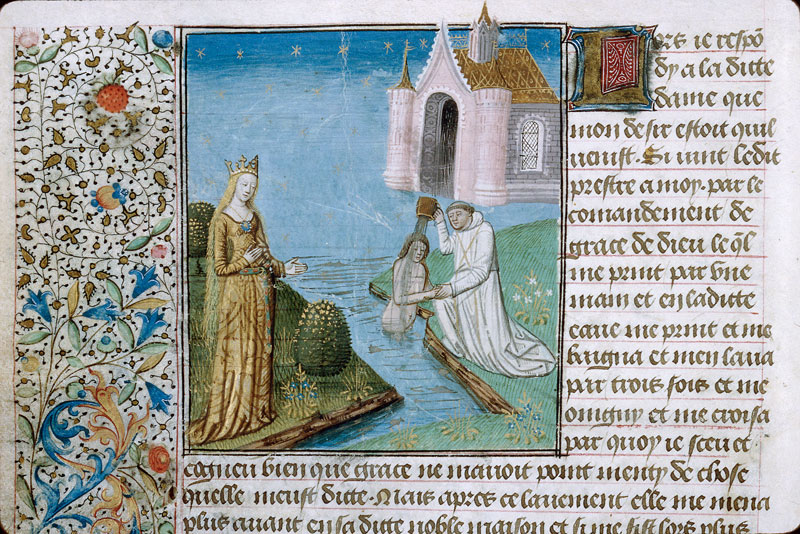 Lors ie respõ
dy a la ditte
dame que
mon desir estoit quil
venist. Si vint ledit
prestre a moy. par le
comandement de
grace de dieu le ql̃
me print par vne
main et en laditte
eaue me print et me
baigna et men laua
par trois fois et me
onigny et me croisa
par quoy ie sceu et
cogneu bien que grace ne mauoit point menty de chose
quelle meust ditte. Mais apres ce lauement elle me mena
plus auant en sa ditte noble maison et si me fist lors plus